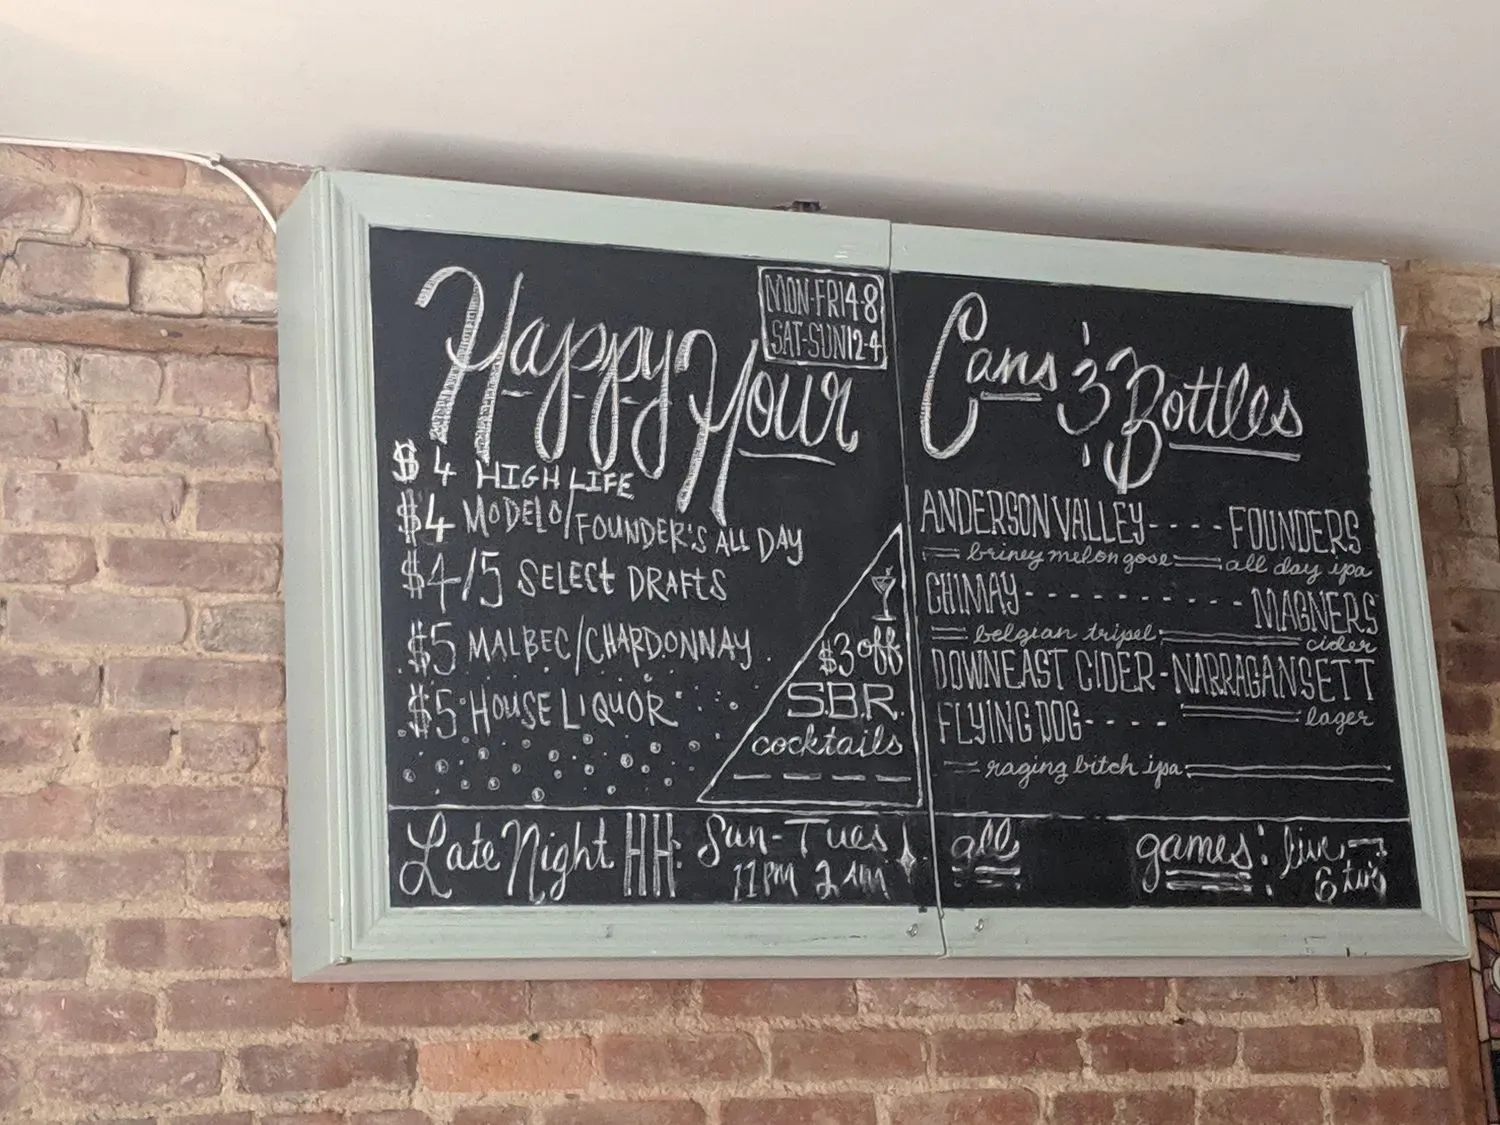 Happy Hour
MON-FRI 4-8
SAT-SUN 12-4
$4 HIGH LIFE
$4 MODELO/FOUNDER'S ALL DAY
$4/5 SELECT DRAFTS
$5 MALBEC/CHARDONNAY
$5 HOUSE LIQUOR
$3 off
S.B.R.
cocktails
Late Night HH: Sun-Tues
11PM 2AM
Cans & Bottles
ANDERSON VALLEY---- FOUNDERS
briney melon gose all day ipa
CHIMAY----------- MAGNERS
belgian tripel cider
DOWNEAST CIDER - NARRAGANSETT
lager
FLYING DOG----
raging bitch ipa
all games: live
6